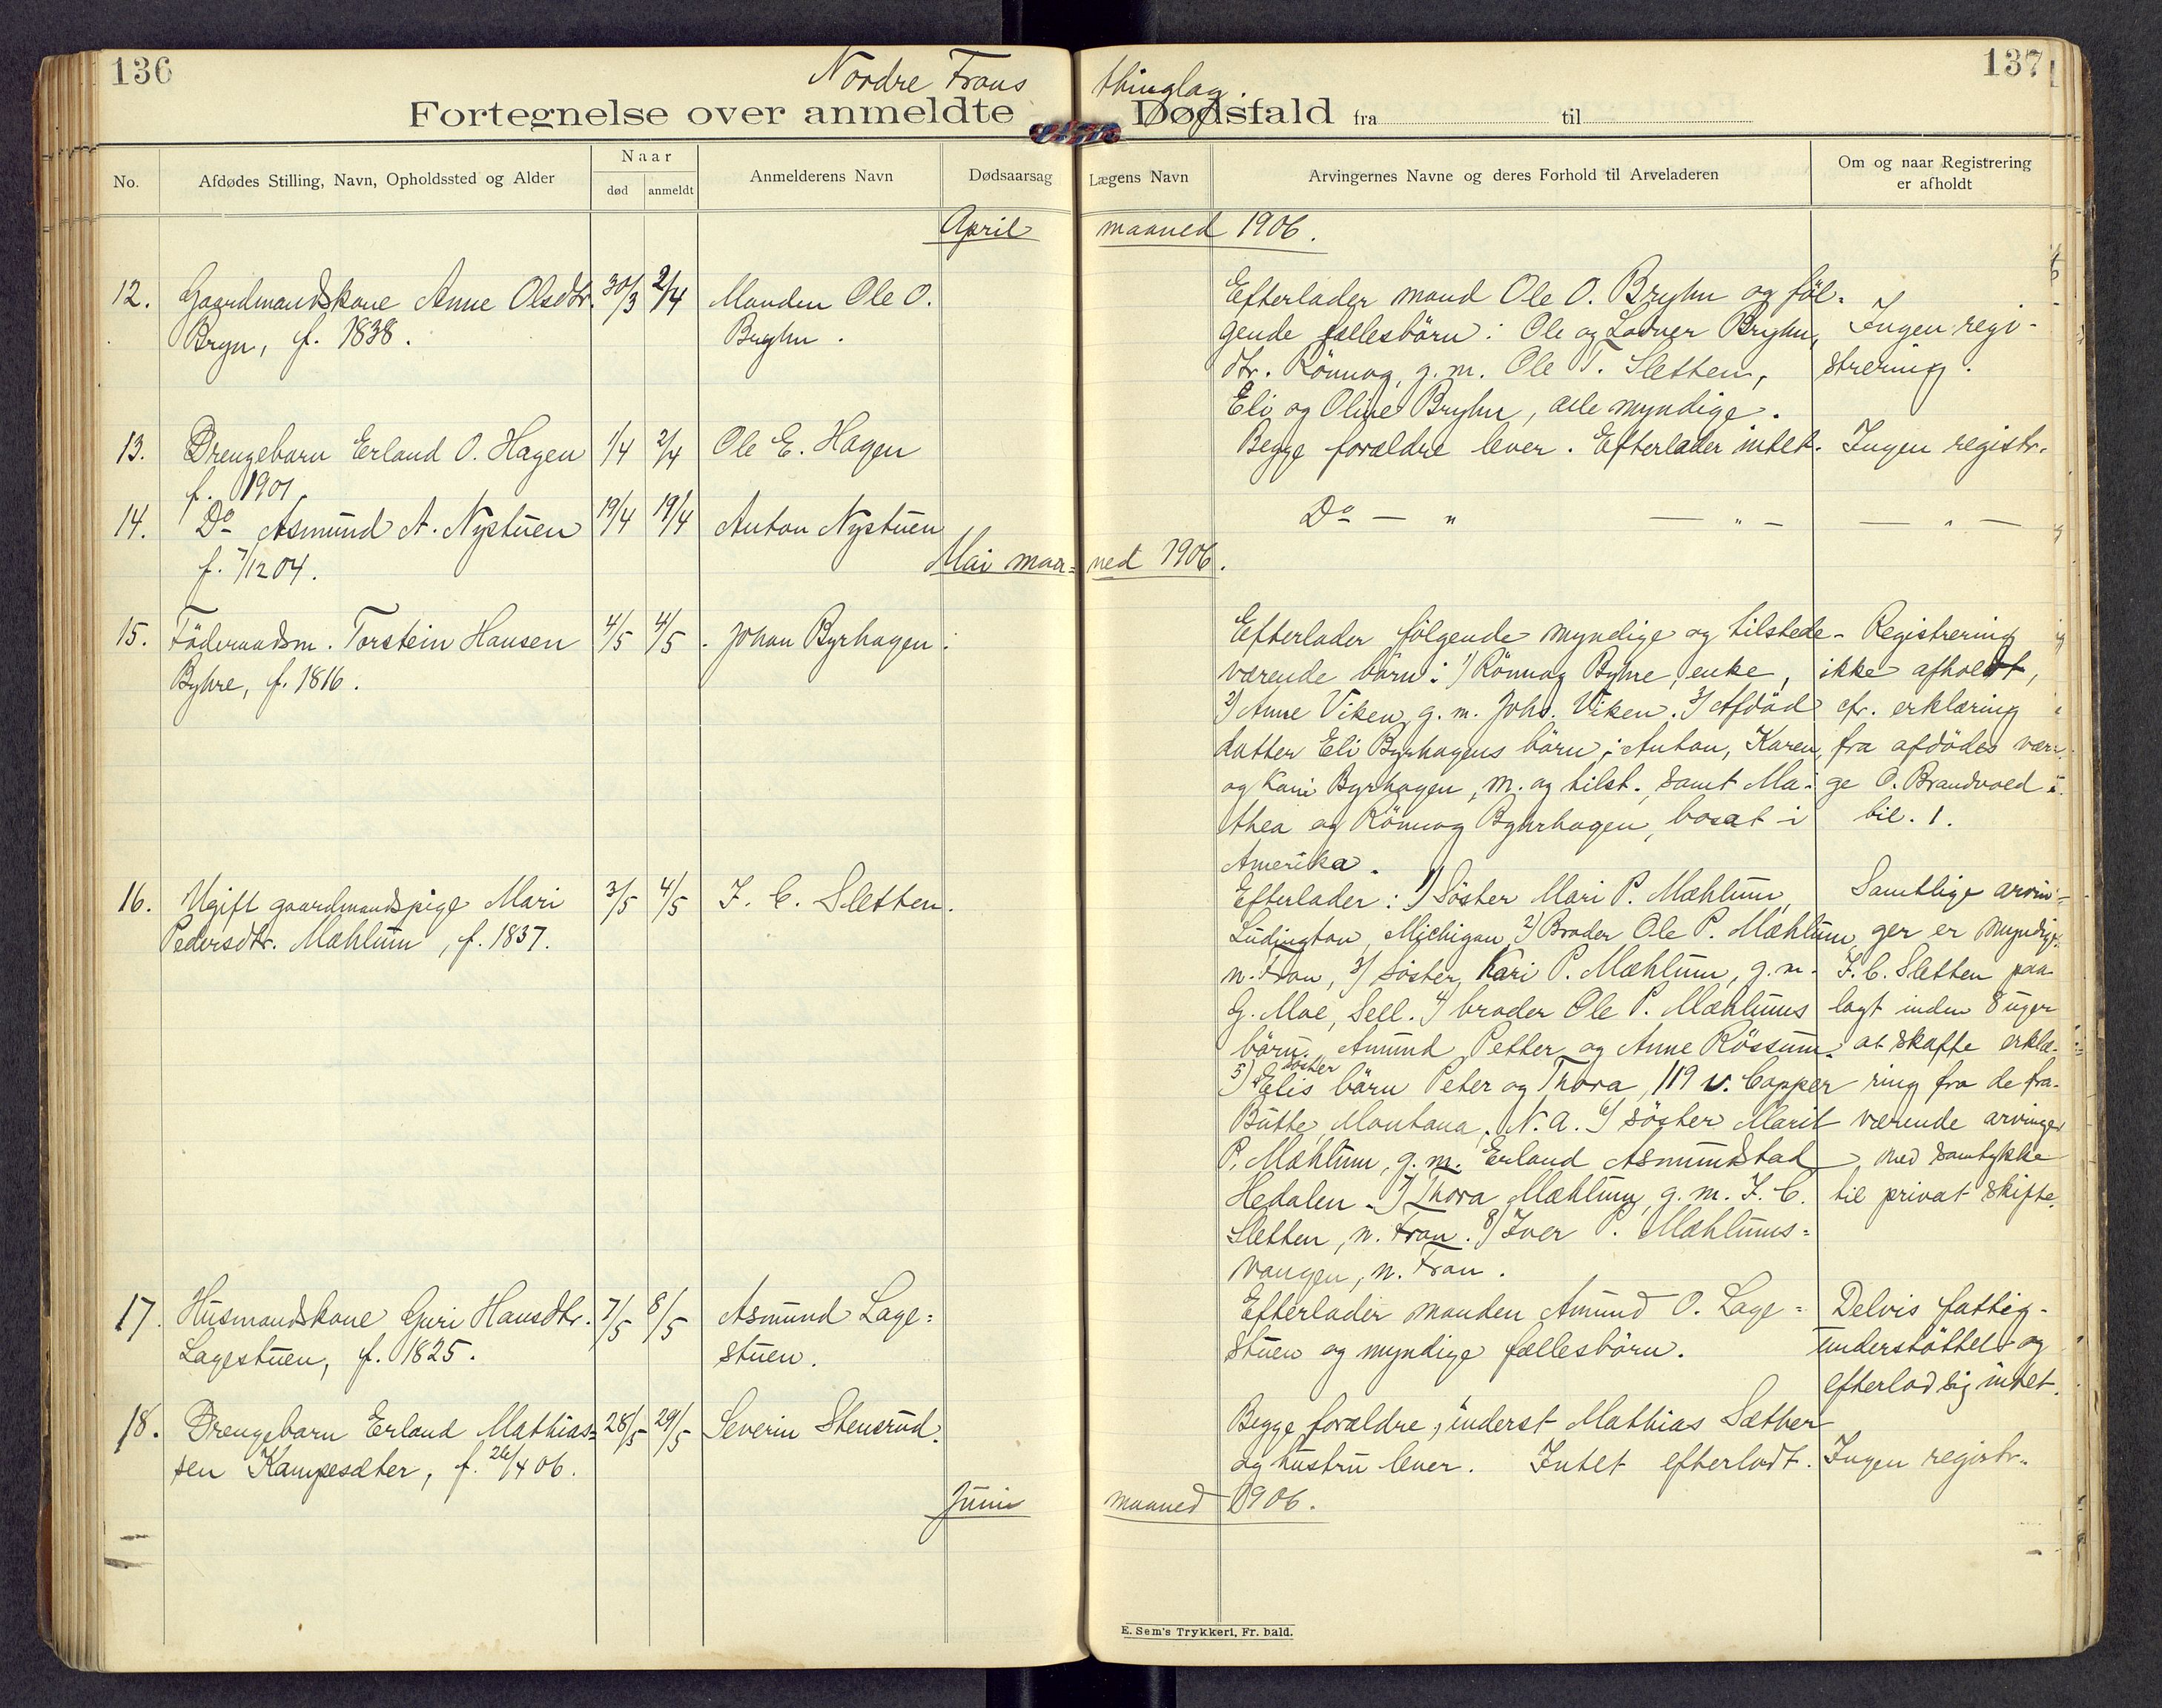 136
137
Nordre Frons thinglag.
Fortegnelse over anmeldte Dødsfald fra til
No.
Afdødes Stilling, Navn, Opholdssted og Alder
Naar
død
anmeldt
Anmelderens Navn
Dødsaarsag
Lægens Navn
Arvingernes Navne og deres Forhold til Arveladeren
Om og naar Registrering
er afholdt
April maaned 1906.
12. Gaardmandskone Anne Olsdtr. 30/3 2/4 Manden Ole O.
Bryn, f. 1838. Bryhn.
Efterlader mand Ole O. Bryhn og føl-
gende fællesbörn: Ole og Bryhn,
dtr. Rönnog, g. m. Ole T. Sletten,
Eli og Oline Bryhn, alle myndige.
Ingen regi-
strering.
13. Drengebarn Erland O. Hagen 1/4 2/4 Ole E. Hagen
f. 1901.
Begge forældre lever. Efterlader intet. Ingen registr.
14. Do Asmund A. Nystuen 19/4 19/4 Anton Nystuen
f. 7/12 04.
Do — " — " — — " —
Mai maa- ned 1906.
15. Föderaadsm. Torstein Hansen 4/5 4/5 Johan Byrhagen.
Byhre, f. 1816.
Efterlader følgende myndige og tilstede-
værende börn: 1) Rönnog Byhre, enke,
2) Anne Viken, g. m. Johs. Viken. 3) Afdöd
datter Eli Byrhagens börn: Anton, Karen,
og Kari Byrhagen, m. og tilst., samt Ma-
thea og Rönnog Byhrhagen, bosat i
Amerika.
Registrering
ikke afholdt,
cfr. erklæring
fra afdödes vær-
ge O. Brandvold i
bil. 1.
16. Ugift gaardmandspige Mari 3/5 4/5 I. C. Sletten.
Pedersdtr. Mæhlum, f. 1837.
Efterlader: 1) Söster Mari P. Mæhlum,
Ludington, Michigan 2) Broder Ole P. Mæhlum
n. Fron, 3) söster Kari P. Mæhlum, g. m.
G. Moe, Sell. 4) broder Ole P. Mæhlums
börn: Amund, Petter og Anne Rössum.
5) söster Elis börn Peter og Thora, 119 v. Copper
Butte, Montana, N. A. 6) söster Marit
P. Mæhlum, g. m. Erland Asmundstad
Hedalen. 7) Thora Mæhlum, g. m. I. C.
Sletten, n. Fron. 8) Iver P. Mæhlums-
vangen, n. Fron.
Samtlige arvin-
ger er myndige.
I. C. Sletten paa-
lagt inden 8 uger
at skaffe erklæ-
ring fra de fra-
værende arvinger
med samtykke
til privat skifte.
17. Husmandskone Guri Hansdtr. 7/5 8/5 Asmund Lage-
Lagestuen, f. 1825. stuen.
Efterlader manden Amund O. Lage-
stuen og myndige fællesbörn.
Delvis fattig-
understöttet og
efterlod sig intet.
18. Drengebarn Erland Mathias- 28/5 29/5 Severin Stensrud.
sen Kampesæter, f. 26/4 06.
Begge forældre, inderst Mathias Sæther
og hustru lever. Intet efterladt.
Ingen registr.
Juni maaned 1906.
E. Sem's Trykkeri, Fr. hald.